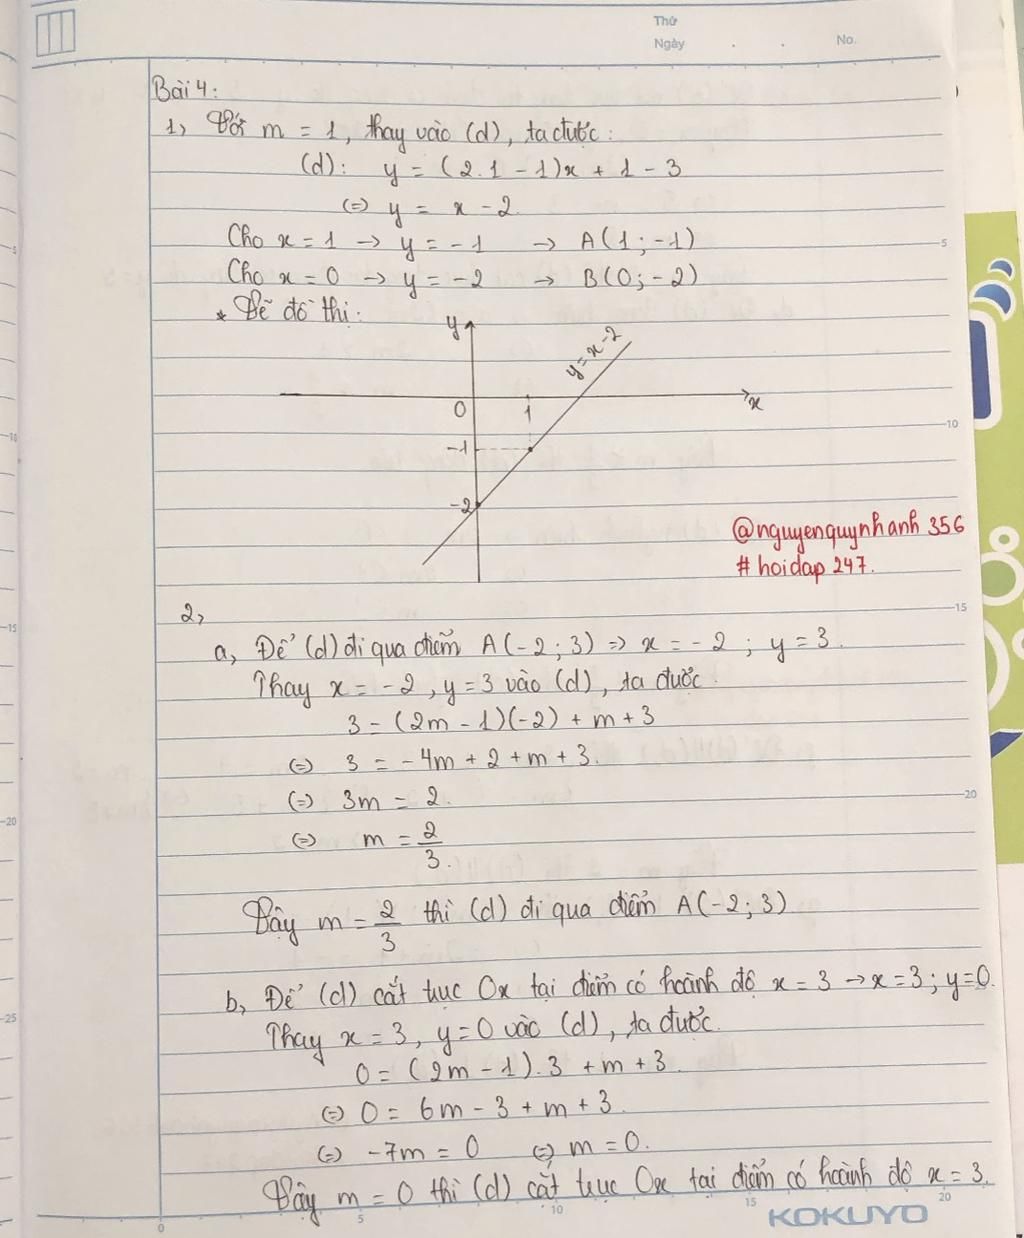 Thứ
Ngày . . No.
Bài 4:
1, Với m = 1, thay vào (d), ta được:
(d): y = (2.1 - 1)x + 1 - 3
(=) y = x - 2
Cho x = 1 → y = -1 → A(1; -1)
Cho x = 0 → y = -2 → B(0; -2)
* Vẽ đồ thị:
y
y = x - 2
0 1 x
-1
-2
@nguyenquynhanh356
#hoidap247.
2,
a, Để (d) đi qua điểm A(-2; 3) => x = -2; y = 3.
Thay x = -2, y = 3 vào (d), ta được
3 = (2m - 1)(-2) + m + 3
(=) 3 = -4m + 2 + m + 3.
(=) 3m = 2.
(=) m = 2/3.
Vậy m = 2/3 thì (d) đi qua điểm A(-2; 3)
b, Để (d) cắt trục Ox tại điểm có hoành độ x = 3 → x = 3; y = 0.
Thay x = 3, y = 0 vào (d), ta được.
0 = (2m - 1).3 + m + 3.
(=) 0 = 6m - 3 + m + 3.
(=) -7m = 0 (=) m = 0.
Vậy m = 0 thì (d) cắt trục Ox tại điểm có hoành độ x = 3.
0 5 10 15 20
KOKUYO